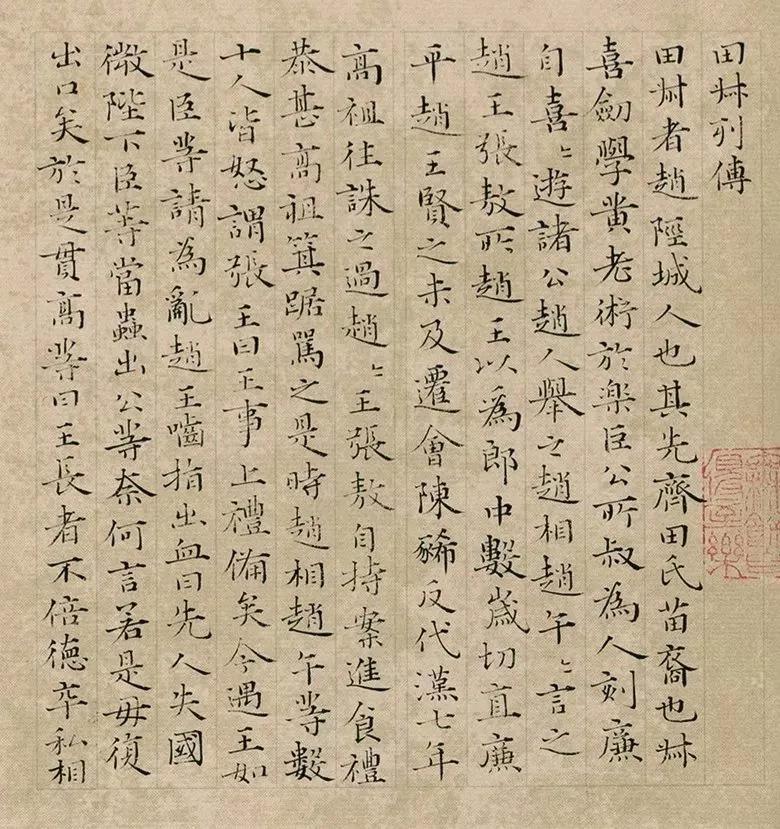 田叔列傳
田叔者趙陘城人也其先齊田氏苗裔也叔
喜劍學黃老術於樂臣公所叔為人刻廉
自喜〻遊諸公趙人舉之趙相趙午〻言之
趙王張敖所趙王以為郎中數歲切直廉
平趙王賢之未及遷會陳豨反代漢七年
高祖往誅之過趙〻王張敖自持案進食禮
恭甚高祖箕踞罵之是時趙相趙午等數
十人皆怒謂張王曰王事上禮備矣今遇王如
是臣等請為亂趙王嚙指出血曰先人失國
微陛下臣等當蟲出公等奈何言若是毋復
出口矣於是貫高等曰王長者不倍德卒私相